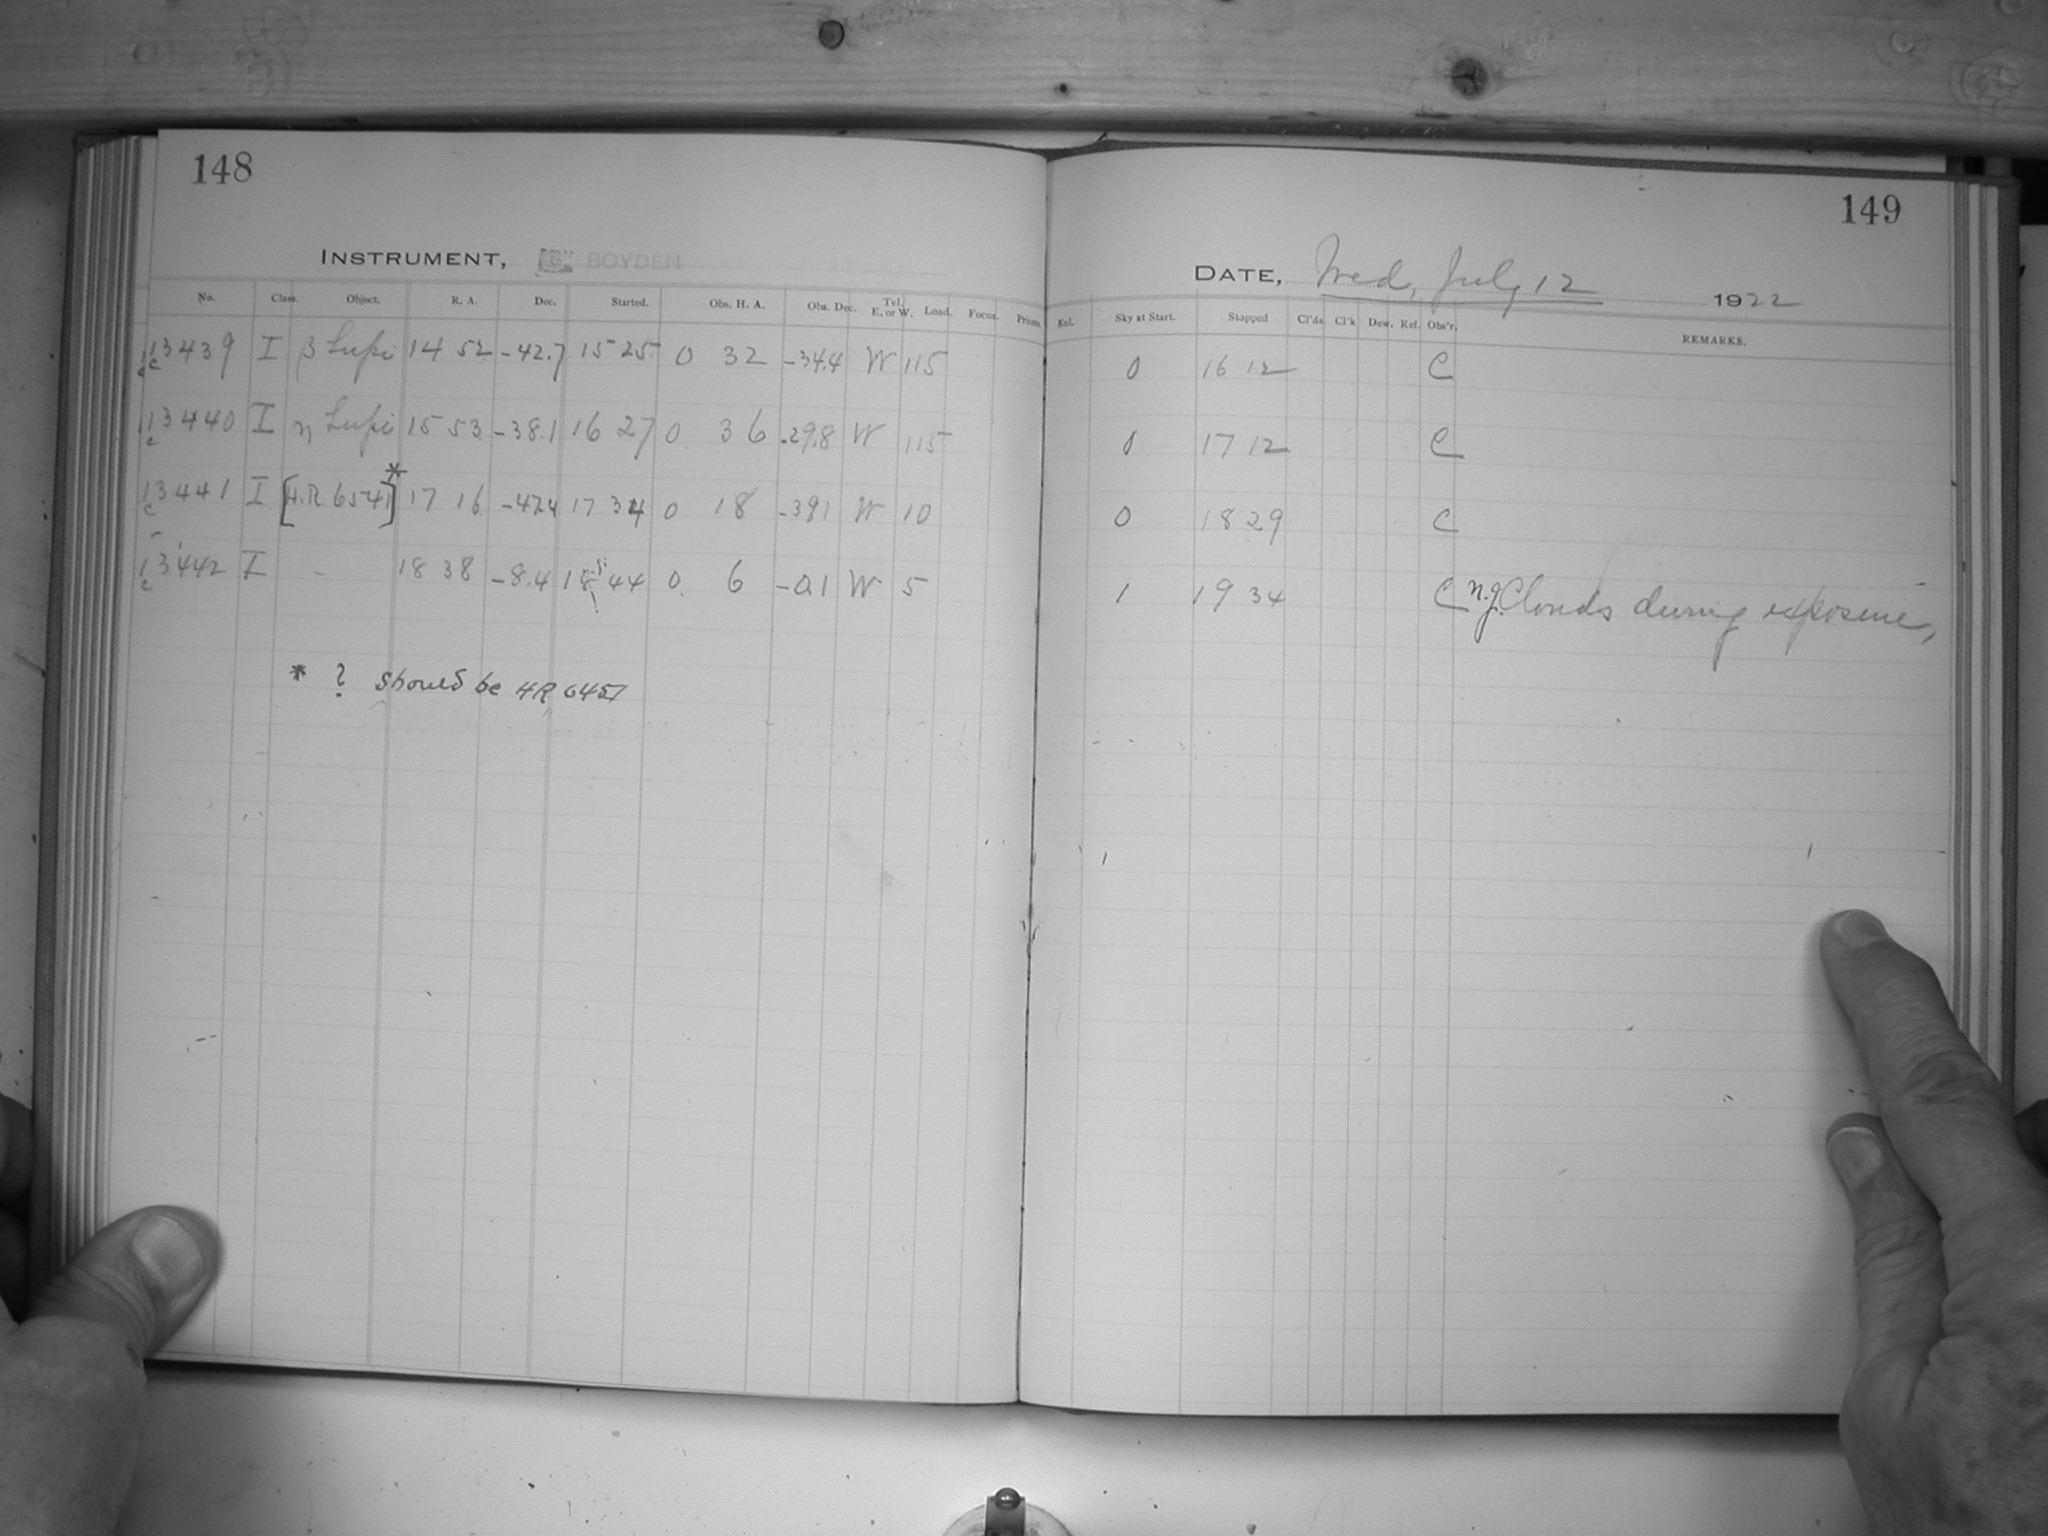 148
149
INSTRUMENT, "B" BOYDEN
DATE, Wed, July 12 1922
No. Class. Object. R. A. Dec. Started. Obs. H. A. Obs. Dec. Tel. E. or W. Load. Focus. Prisms. Enl. Sky at Start. Stopped Cl'ds. Cl'k Dew. Ref. Obs'r. REMARKS.
13439 I β Lupi 14 52 -42.7 15 25 0 32 -34.4 W 115 0 16 12 C
13440 I η Lupi 15 53 -38.1 16 27 0 36 -29.8 W 115 0 17 12 C
13441 I [H.R. 6541]* 17 16 -47.4 17 34 0 18 -39.1 W 10 0 18 29 C
13442 I - 18 38 -8.4 18 44 0 6 -0.1 W 5 1 19 34 C n.g. Clouds during exposure,
* ? should be HR 6451